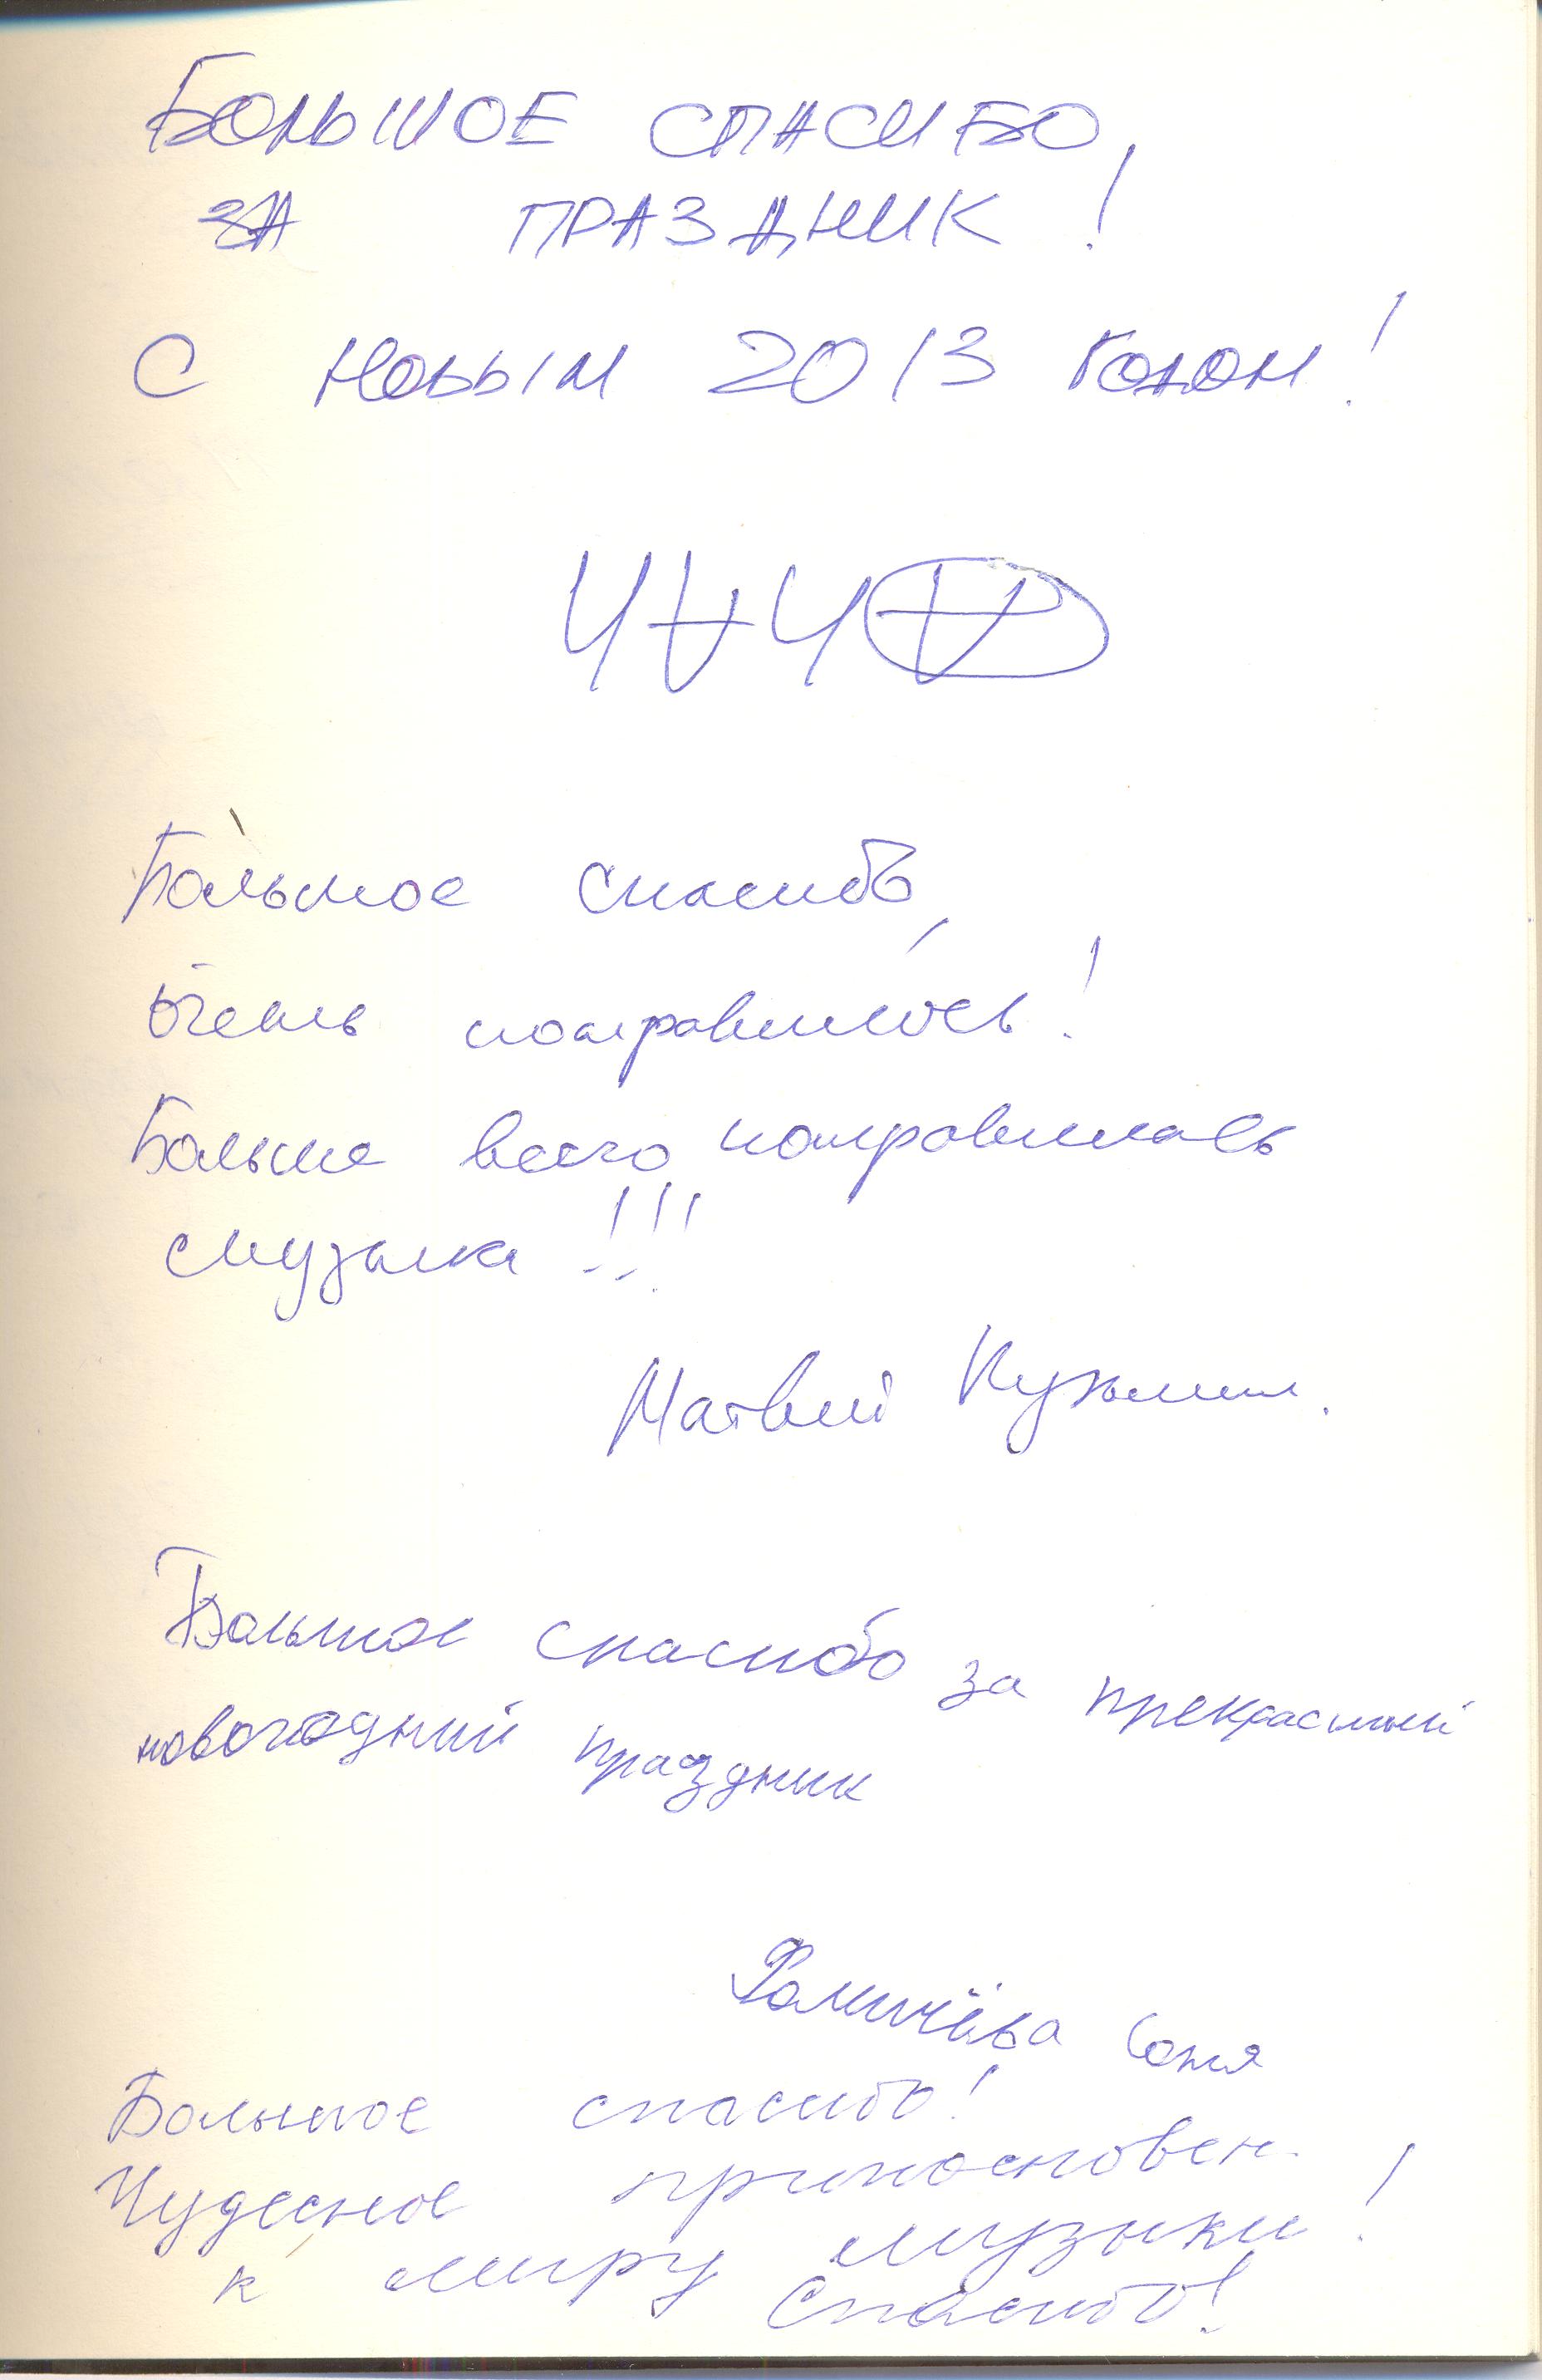 Большое спасибо,
за праздник!
С новым 2013 годом!
Большое спасибо,
очень понравилось!
Больше всего понравилась
музыка!!!
Матвей Кузьмин.
Большое спасибо за прекрасный
новогодний праздник
Фомичёва Соня
Большое спасибо!
Чудесное прикосновен.
к миру музыки!
Спасибо!